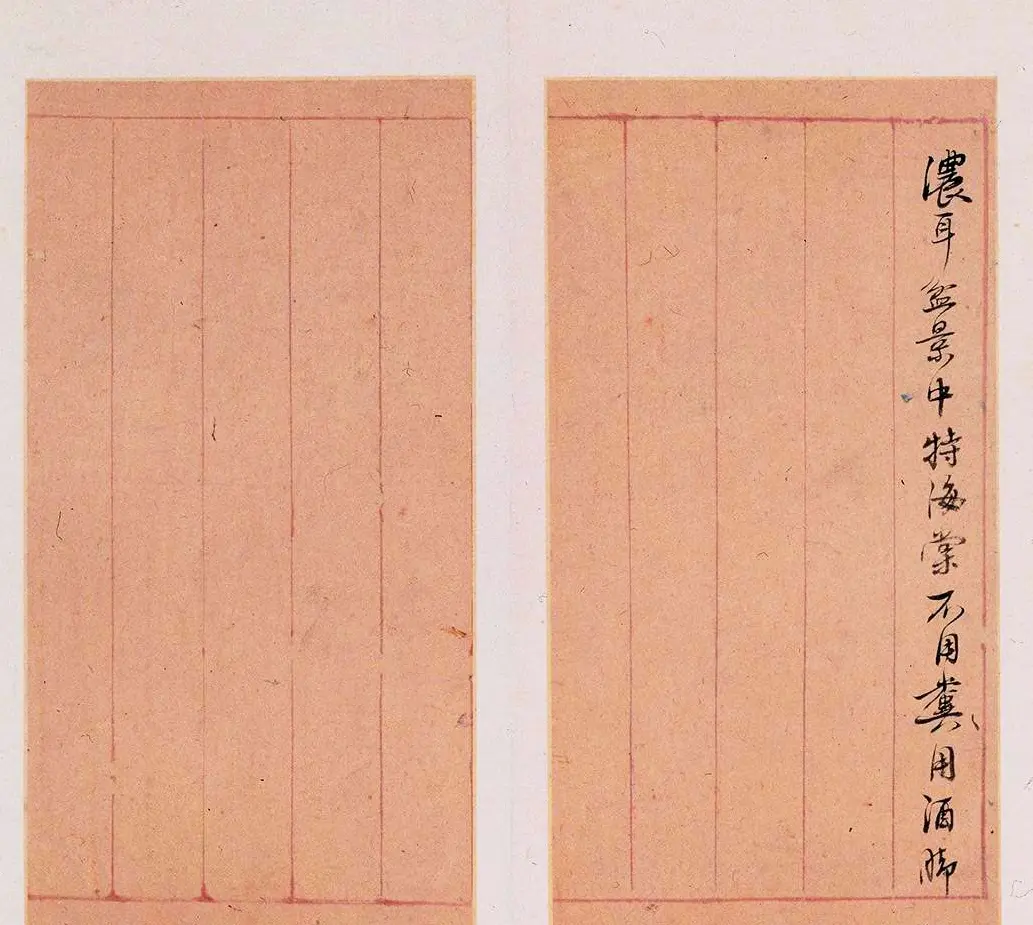 濃耳盆景中特海棠不用糞用酒脚